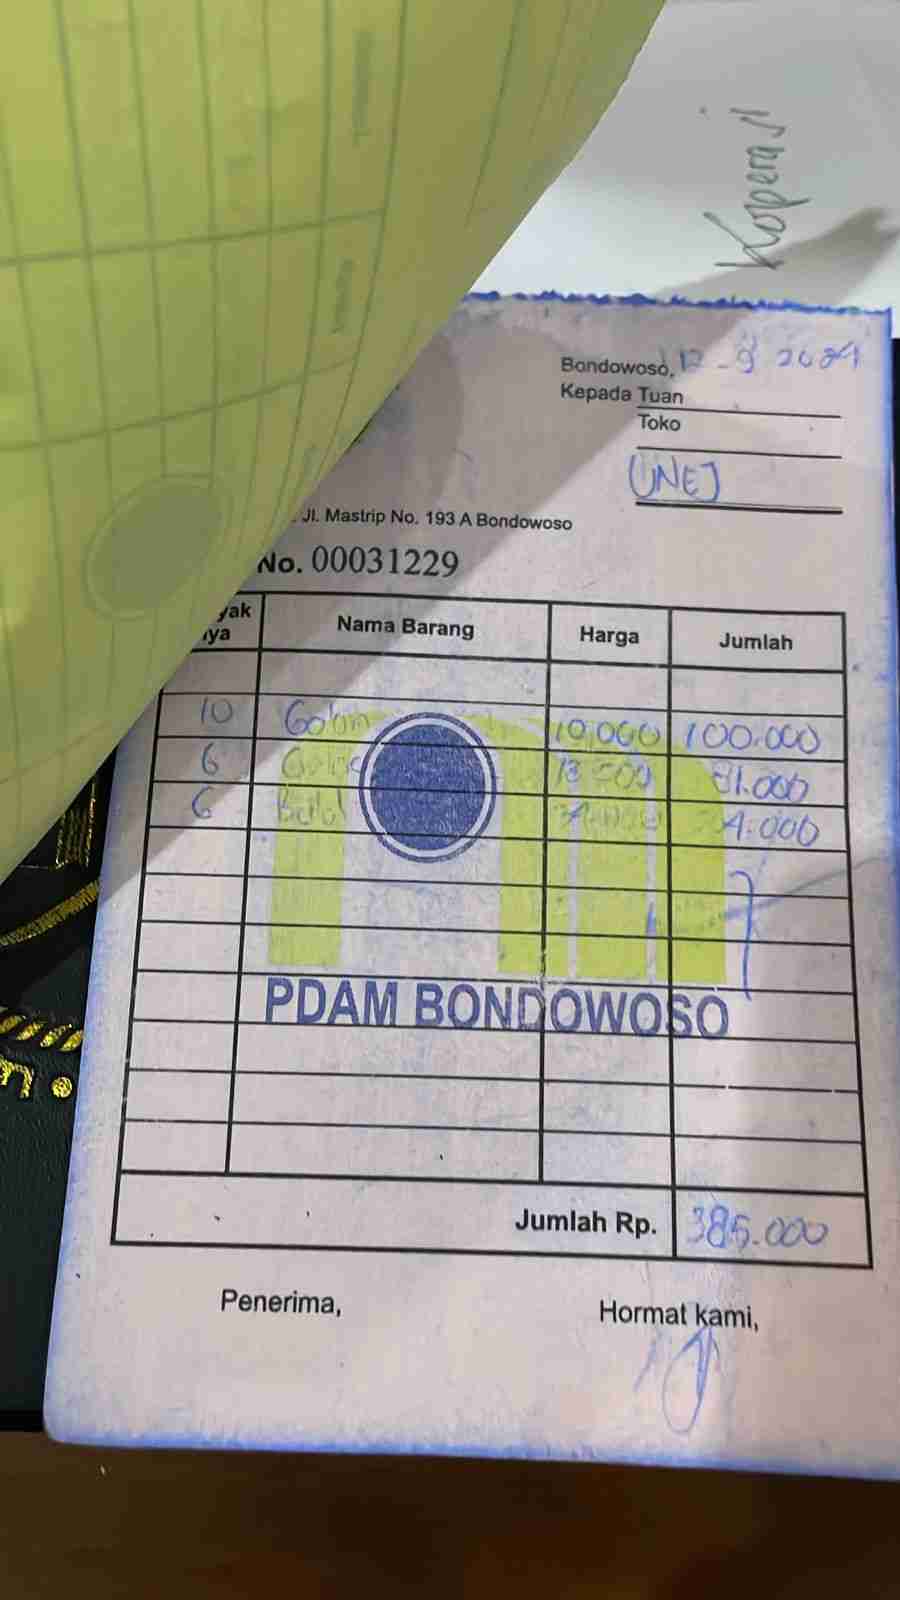 Koperasi
Bondowoso, 12 - 9 2024
Kepada Tuan
Toko
UNEJ
Jl. Mastrip No. 193 A Bondowoso
No. 00031229
yak nya Nama Barang Harga Jumlah
10 Galon 10.000 100.000
6 13.500 81.000
6 4.000
PDAM BONDOWOSO
Jumlah Rp. 385.000
Penerima, Hormat kami,